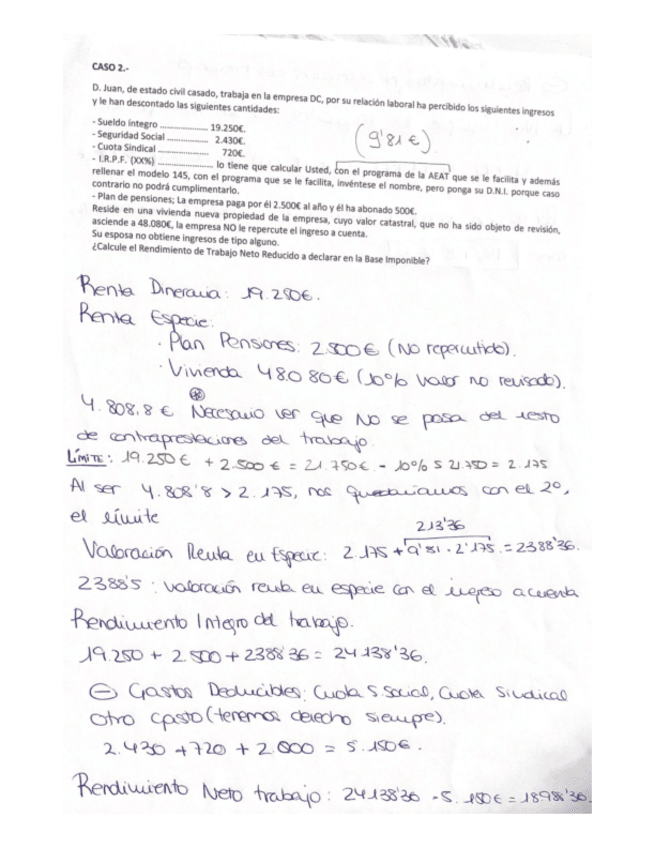 CASO 2.-
D. Juan, de estado civil casado, trabaja en la empresa DC, por su relación laboral ha percibido los siguientes ingresos
y le han descontado las siguientes cantidades:
- Sueldo íntegro .................... 19.250€.
- Seguridad Social ................. 2.430€.
- Cuota Sindical ..................... 720€.
(9'81 €)
- I.R.P.F. (XX%) ....................... lo tiene que calcular Usted, con el programa de la AEAT que se le facilita y además
rellenar el modelo 145, con el programa que se le facilita, invéntese el nombre, pero ponga su D.N.I. porque caso
contrario no podrá cumplimentarlo.
- Plan de pensiones; La empresa paga por él 2.500€ al año y él ha abonado 500€.
Reside en una vivienda nueva propiedad de la empresa, cuyo valor catastral, que no ha sido objeto de revisión,
asciende a 48.080€, la empresa NO le repercute el ingreso a cuenta.
Su esposa no obtiene ingresos de tipo alguno.
¿Calcule el Rendimiento de Trabajo Neto Reducido a declarar en la Base Imponible?
Renta Dineraria: 19.250€.
Renta Especie:
· Plan Pensiones: 2.500€ (No repercutido).
· Vivienda 48.080€ (10% valor no revisado).
4.808,8 € Necesario ver que NO se pasa del resto
de contraprestaciones del trabajo.
LÍMITE: 19.250€ + 2.500€ = 21.750€ - 10% s 21.750 = 2.175
Al ser 4.808'8 > 2.175, nos quedaríamos con el 2º,
el límite
213'36
Valoración Renta en Especie: 2.175 + 9'81 · 2'175. = 2388'36.
2388'5 : valoración renta en especie con el ingreso a cuenta
Rendimiento Integro del trabajo.
19.250 + 2.500 + 2388'36 = 24.138'36.
⊖ Gastos Deducibles: Cuota S.Social, Cuota Sindical
Otro gasto (tenemos derecho siempre).
2.430 + 720 + 2.000 = 5.150€.
Rendimiento Neto trabajo: 24138'36 - 5.150€ = 18.988'36.